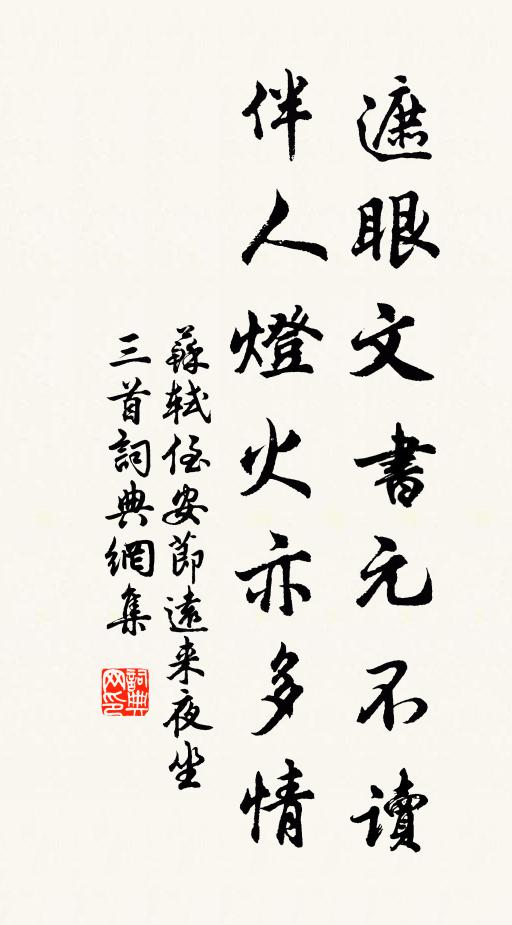 遮眼文書元不讀
伴人燈火亦多情
蘇軾侄安節遠来夜坐
三首詞典網集
詞典
网印